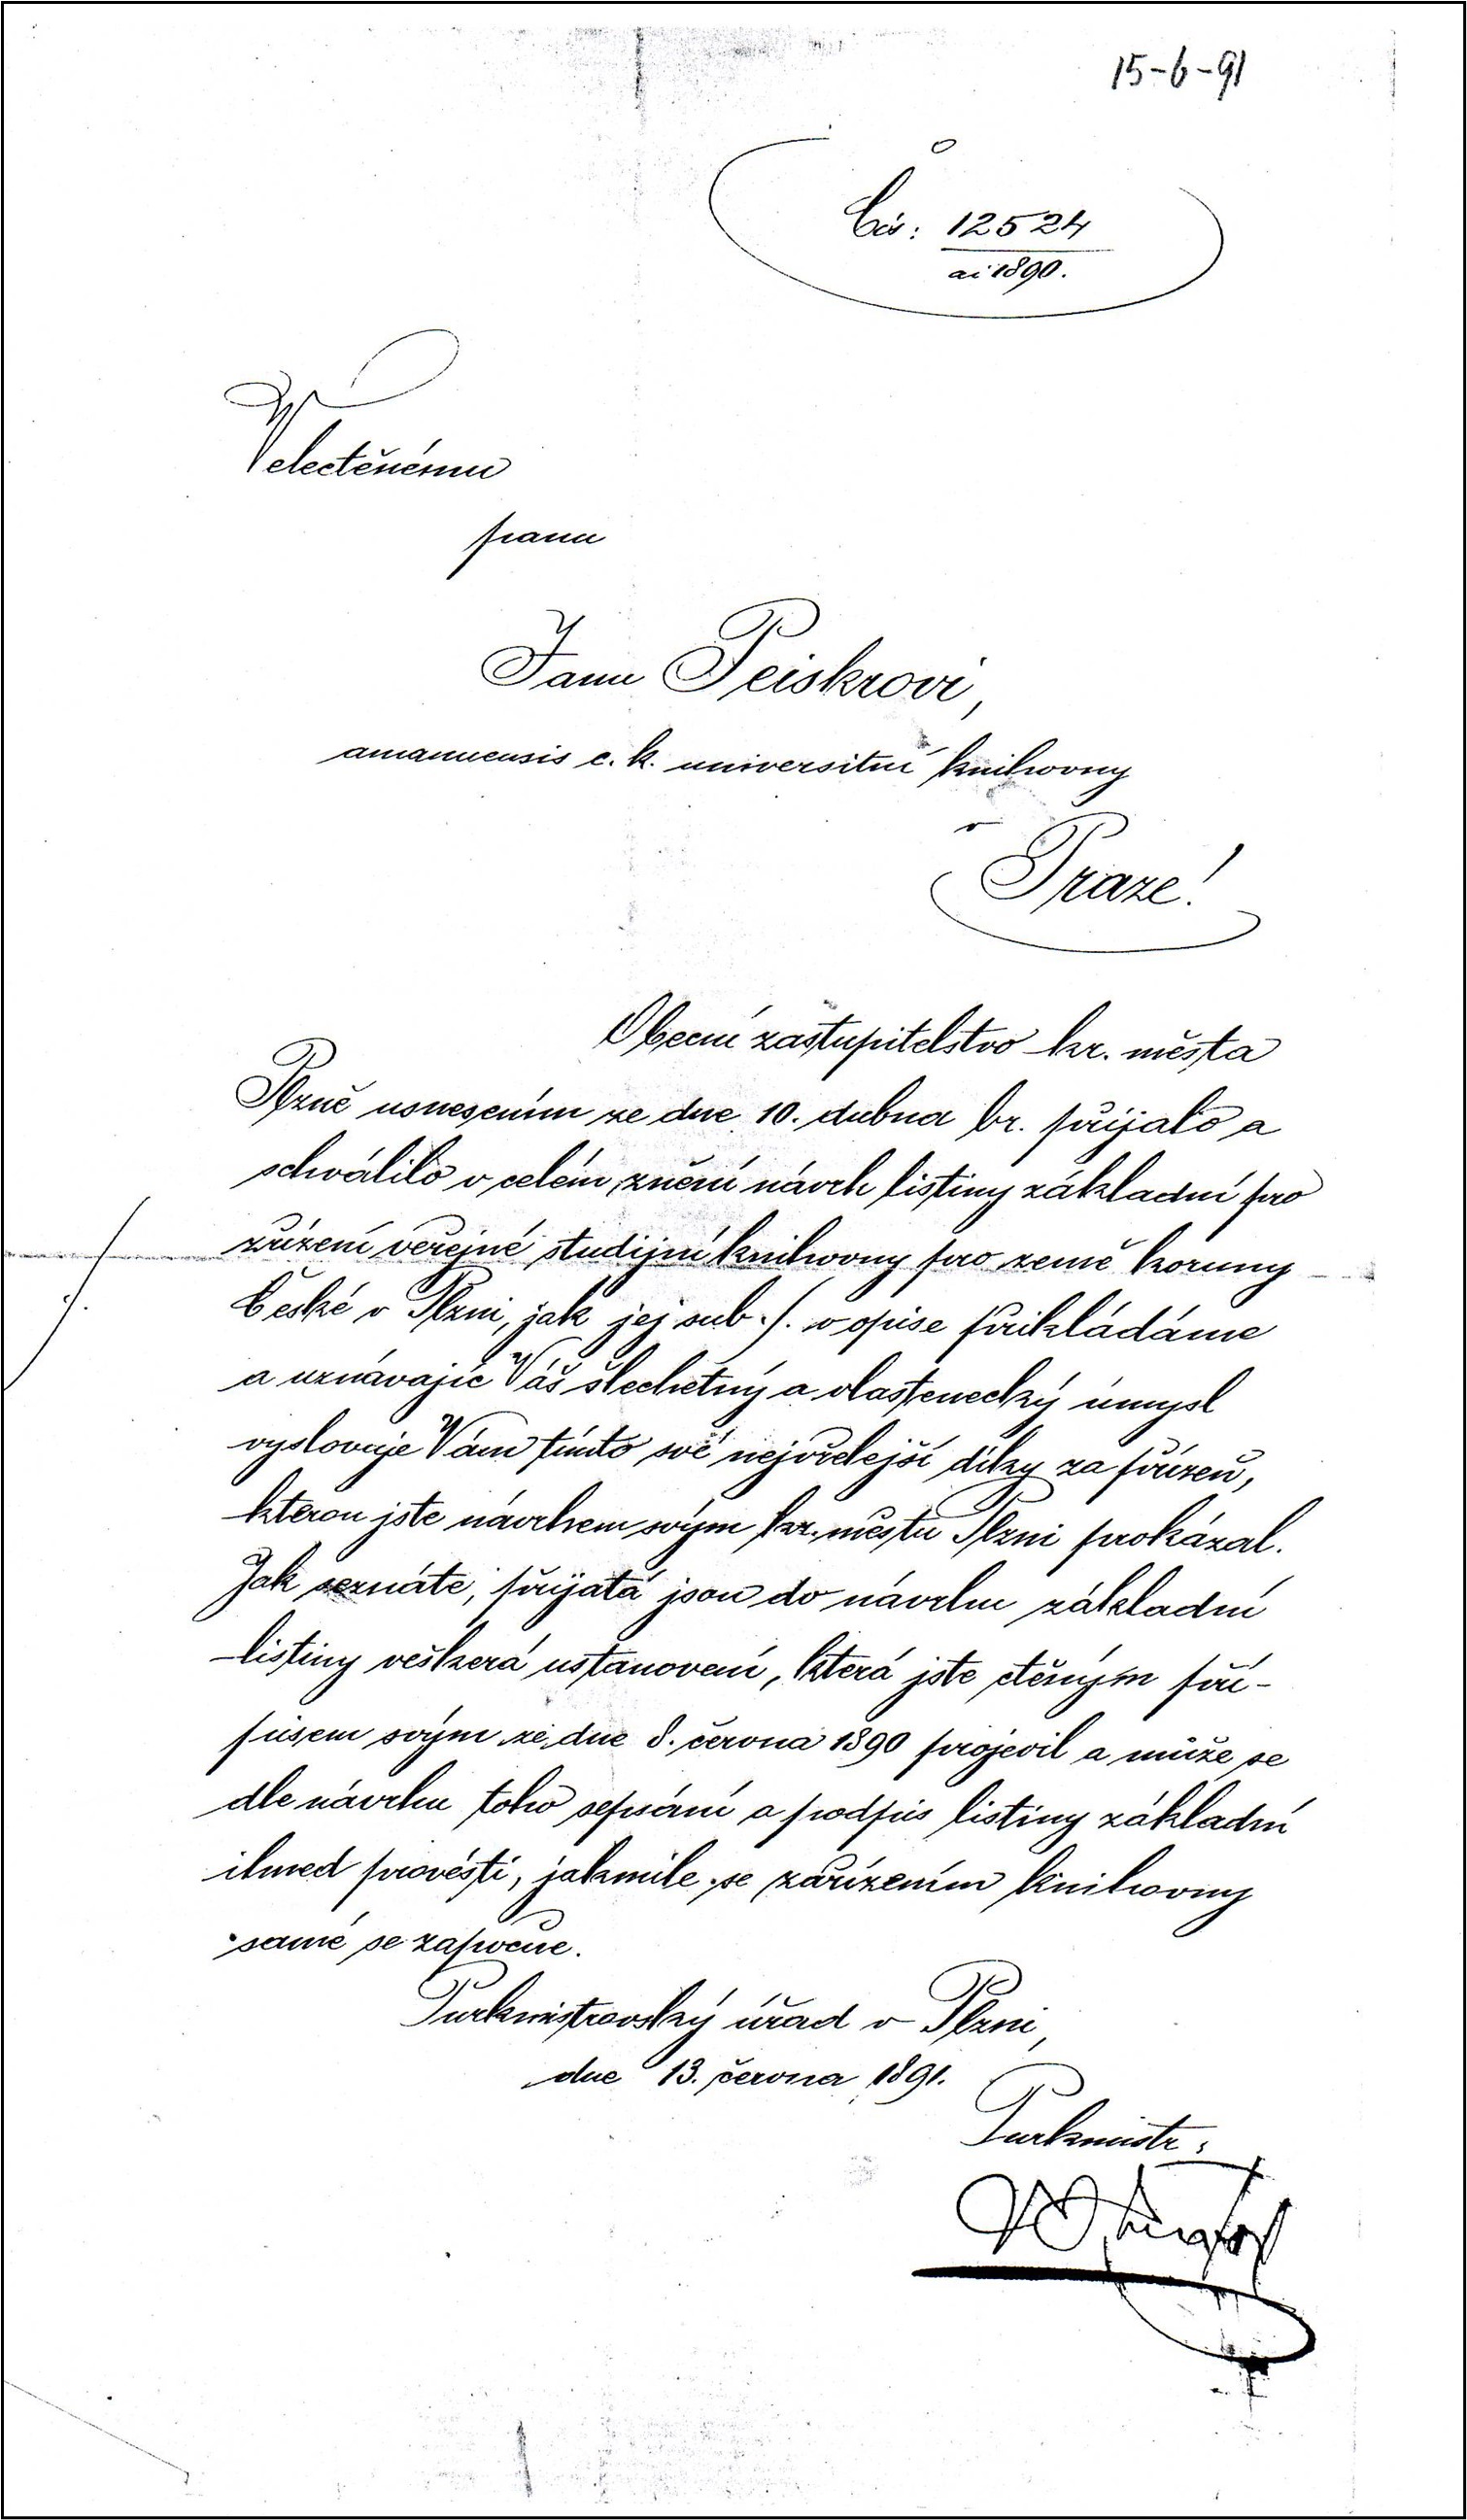 15-6-91
Čís: 12524
ai 1890.
Velectěnému
panu
Janu Peiskrovi,
amanuensis c. k. universitní knihovny
v
Praze!
Obecní zastupitelstvo kr. města
Plzně usnesením ze dne 10. dubna br. přijalo a
schválilo v celém znění návrh listiny základní pro
zřízení veřejné studijní knihovny pro země koruny
České v Plzni, jak jej sub ·/. v opise přikládáme
a uznávajíc Váš šlechetný a vlastenecký úmysl
vyslovuje Vám tímto své nejvřelejší díky za přízeň,
kterou jste návrhem svým kr. městu Plzni prokázal.
Jak seznáte, přijatá jsou do návrhu základní
listiny veškerá ustanovení, která jste ctěným pří-
pisem svým ze dne 8. června 1890 projevil a může se
dle návrhu toho sepsání a podpis listiny základní
ihned provésti, jakmile se zařízením knihovny
samé se započne.
Purkmistrovský úřad v Plzni,
dne 13. června 1891.
Purkmistr: